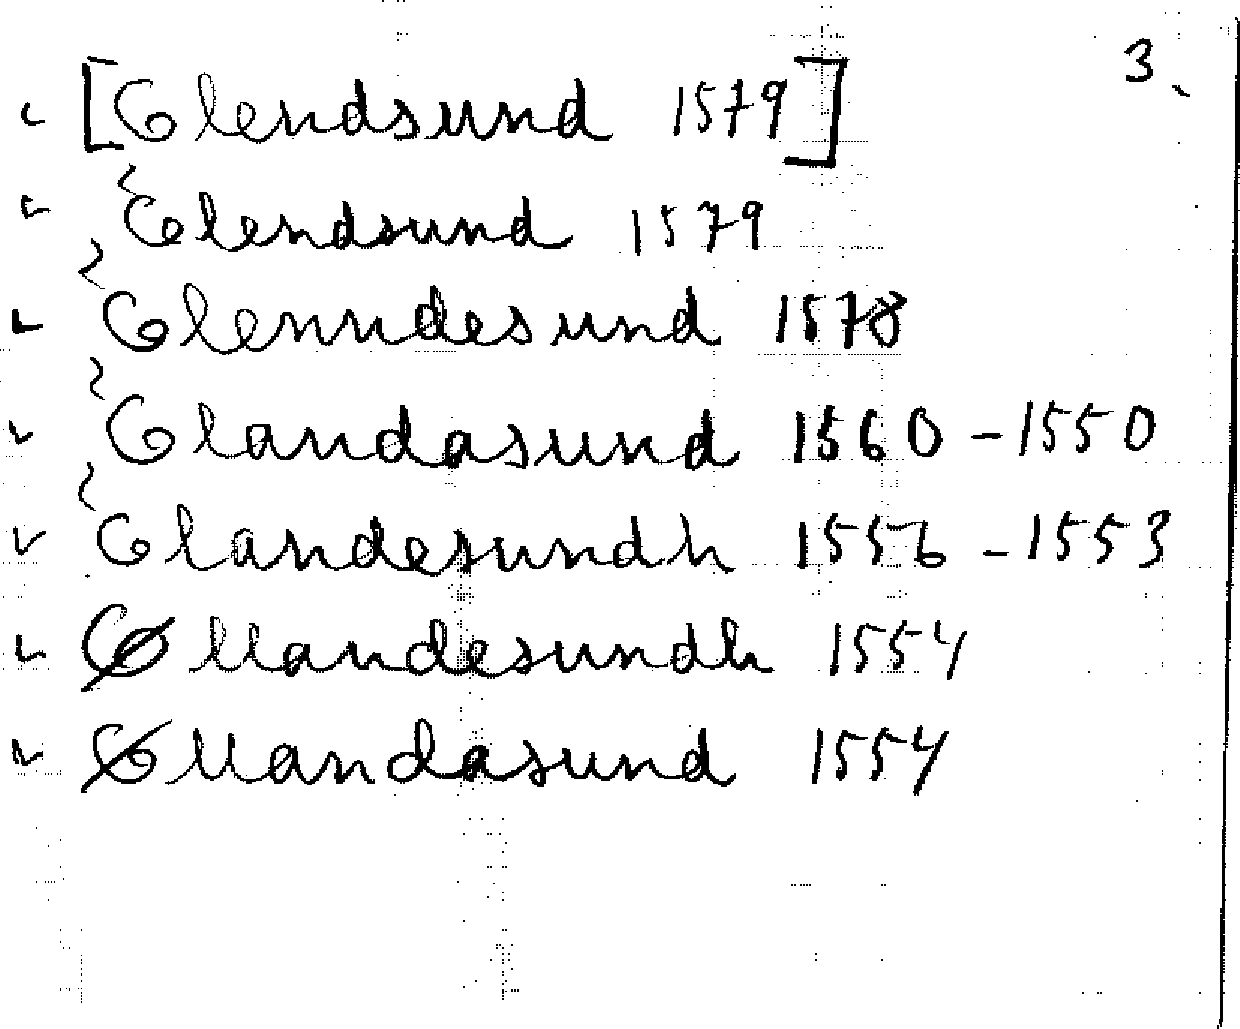 3.
[Olendsund 1579]
Ölendsund 1579
Ölenndesund 1578
Ölandasund 1560-1550
Ölandesundh 1556-1553
Øllandesundh 1554
Øllandasund 1554